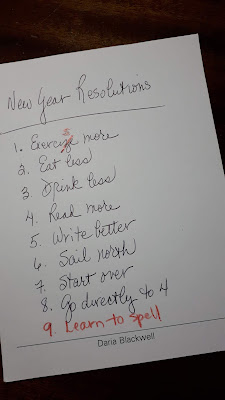 New Year Resolutions
1. Exercise more
2. Eat less
3. Drink less
4. Read more
5. Write better
6. Sail north
7. Start over
8. Go directly to 4
9. Learn to spell
Daria Blackwell